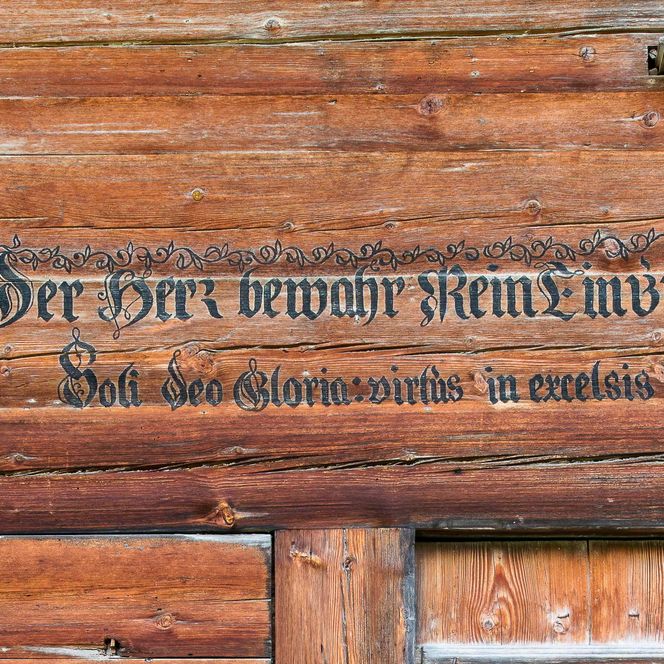 Der Herr bewahr Mein Einv
Soli Deo Gloria: virtus in excelsis